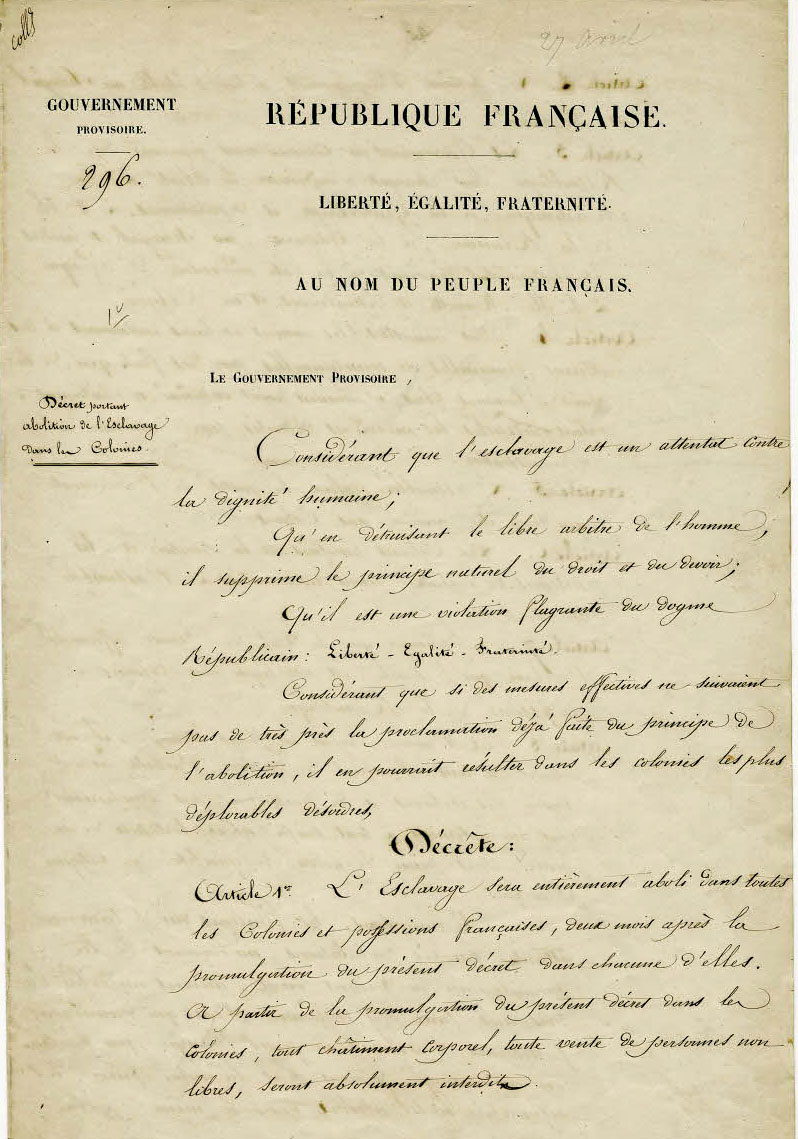 collé
27 avril
GOUVERNEMENT
PROVISOIRE.
296.
RÉPUBLIQUE FRANÇAISE.
LIBERTÉ, ÉGALITÉ, FRATERNITÉ.
AU NOM DU PEUPLE FRANÇAIS.
LE GOUVERNEMENT PROVISOIRE,
Décret portant
abolition de l'Esclavage
dans les Colonies.
Considérant que l'esclavage est un attentat contre
la dignité humaine;
Qu'en détruisant le libre arbitre de l'homme,
il supprime le principe naturel du droit et du devoir;
Qu'il est une violation flagrante du dogme
Républicain: Liberté - Egalité - Fraternité.
Considérant que si des mesures effectives ne suivaient
pas de très près la proclamation déjà faite du principe de
l'abolition, il en pourrait résulter dans les colonies les plus
déplorables désordres,
Décrète:
Article 1er. L'Esclavage sera entièrement aboli dans toutes
les Colonies et possessions françaises, deux mois après la
promulgation du présent décret dans chacune d'elles.
A partir de la promulgation du présent décret dans les
colonies, tout châtiment corporel, toute vente de personnes non
libres, seront absolument interdits.